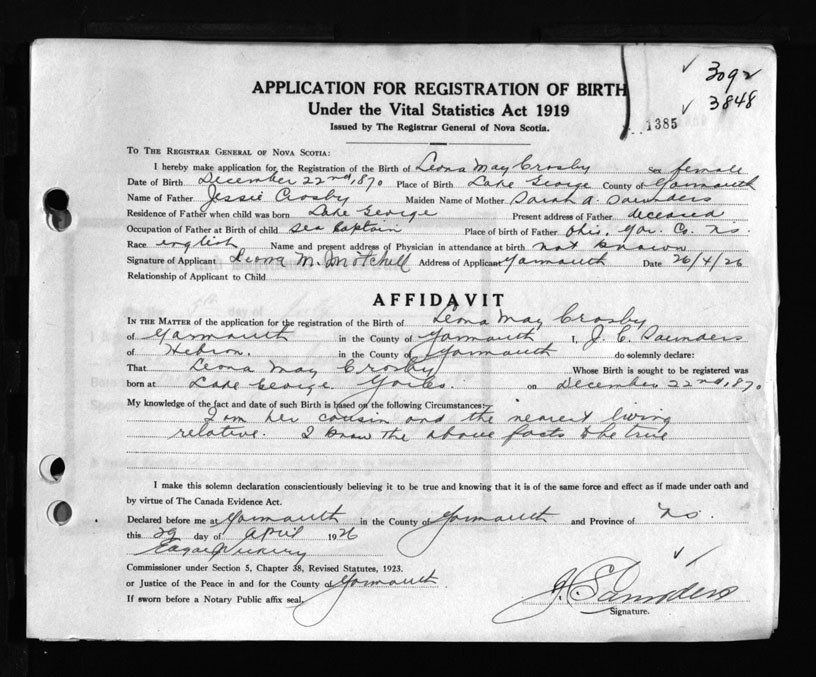 3092
3848
1385
APPLICATION FOR REGISTRATION OF BIRTH
Under the Vital Statistics Act 1919
Issued by The Registrar General of Nova Scotia.
To The Registrar General of Nova Scotia:
I hereby make application for the Registration of the Birth of Leona May Crosby Sex female
Date of Birth December 22nd, 1870 Place of Birth Lake George County of Yarmouth
Name of Father Jessie Crosby Maiden Name of Mother Sarah A. Saunders
Residence of Father when child was born Lake George Present address of Father deceased
Occupation of Father at Birth of child Sea Captain Place of birth of Father Ohio, Yar. Co. N.S.
Race english Name and present address of Physician in attendance at birth not known
Signature of Applicant Leona M. Mitchell Address of Applicant Yarmouth Date 26/4/26
Relationship of Applicant to Child
AFFIDAVIT
In the Matter of the application for the registration of the Birth of Leona May Crosby
of Yarmouth in the County of Yarmouth I, J. C. Saunders
of Hebron. in the County of Yarmouth do solemnly declare:
That Leona May Crosby Whose Birth is sought to be registered was
born at Lake George Yar Co. on December 22nd, 1870
My knowledge of the fact and date of such Birth is based on the following Circumstances:
I am her cousin and the nearest living
relative. I know the above facts to be true
I make this solemn declaration conscientiously believing it to be true and knowing that it is of the same force and effect as if made under oath and
by virtue of The Canada Evidence Act.
Declared before me at Yarmouth in the County of Yarmouth and Province of N.S.
this 29 day of April 1926
Commissioner under Section 5, Chapter 38, Revised Statutes, 1923.
or Justice of the Peace in and for the County of Yarmouth
If sworn before a Notary Public affix seal.
Saunders
Signature.